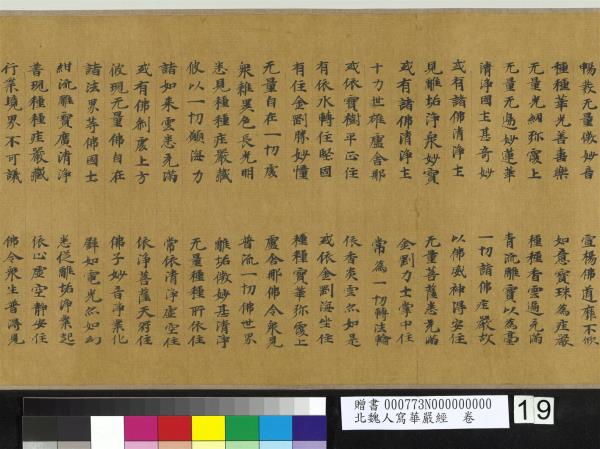 暢發无量微妙音 宣楊佛道靡不
種種華光善樂 如意寶珠為庄嚴
无量光網弥覆上 種種香雲遍充滿
无量无邊妙蓮華 青流離寶以為莖
清淨國土甚奇妙 一切諸佛庄嚴故
或有諸佛清淨土 以佛威神得安住
見離垢淨衆妙寶 无量菩薩悉充滿
或有諸佛清淨土 金剛力士掌中住
十力世雄盧舍那 常為一切轉法輪
或依寶樹平正住 依香炎雲亦如是
有依水轉住堅固 或依金剛海坐住
有住金剛勝妙憧 種種寶華弥覆上
无量自在一切處 盧舍那佛令衆見
衆雜異色長光明 普流一切佛世界
悉見種種庄嚴藏 離垢微妙甚清淨
彼以一切願海力 无量種種所依住
諸如来雲悉充滿 常依清淨虛空住
或有佛刹處上方 依淨菩薩天冠住
彼現无量佛自在 佛子妙音淨業化
諸法界等佛國土 譬如電光亦如幻
紺流離寶廣清淨 悉從離垢淨業起
普現種種庄嚴藏 依心虛空靜安住
行業境界不可議 佛令衆生普得見
贈書 000773N000000000
北魏人寫華嚴經 卷
19